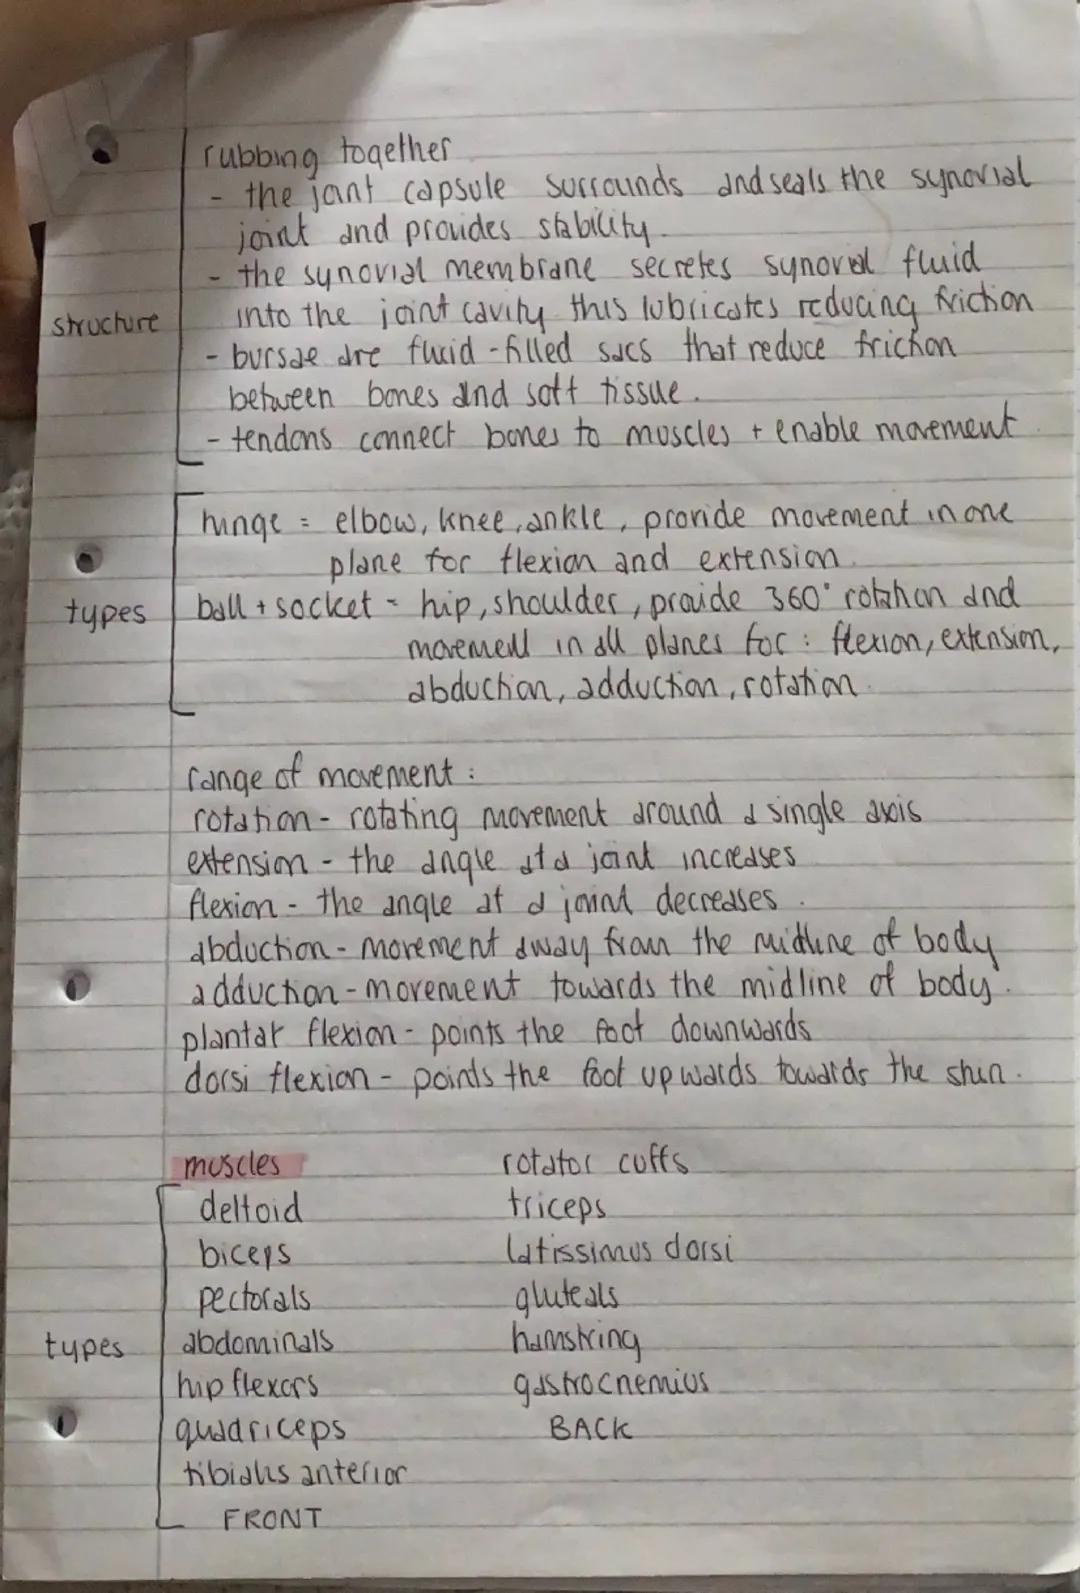 rubbing together
- the joint capsule surrounds and seals the synovial
joint and provides stability.
- the synovial membrane secretes synovial fluid
into the joint cavity this lubricates reducing friction
structure
- bursae are fluid-filled sacs that reduce friction
between bones and soft tissue.
- tendons connect bones to muscles + enable movement.
hinge = elbow, knee, ankle, provide movement in one
plane for flexion and extension.
types
ball + socket = hip, shoulder, provide 360° rotation and
movement in all planes for: flexion, extension,
abduction, adduction, rotation.
range of movement:
rotation - rotating movement around a single axis
extension - the angle at a joint increases
flexion - the angle at a joint decreases.
abduction - movement away from the midline of body
adduction - movement towards the midline of body.
plantar flexion - points the foot downwards
dorsi flexion - points the foot upwards towards the shin.
muscles
deltoid
biceps
pectorals
types
abdominals
hip flexors
quadriceps
tibialis anterior
FRONT
rotator cuffs
triceps
latissimus dorsi
gluteals
hamstring
gastrocnemius
BACK